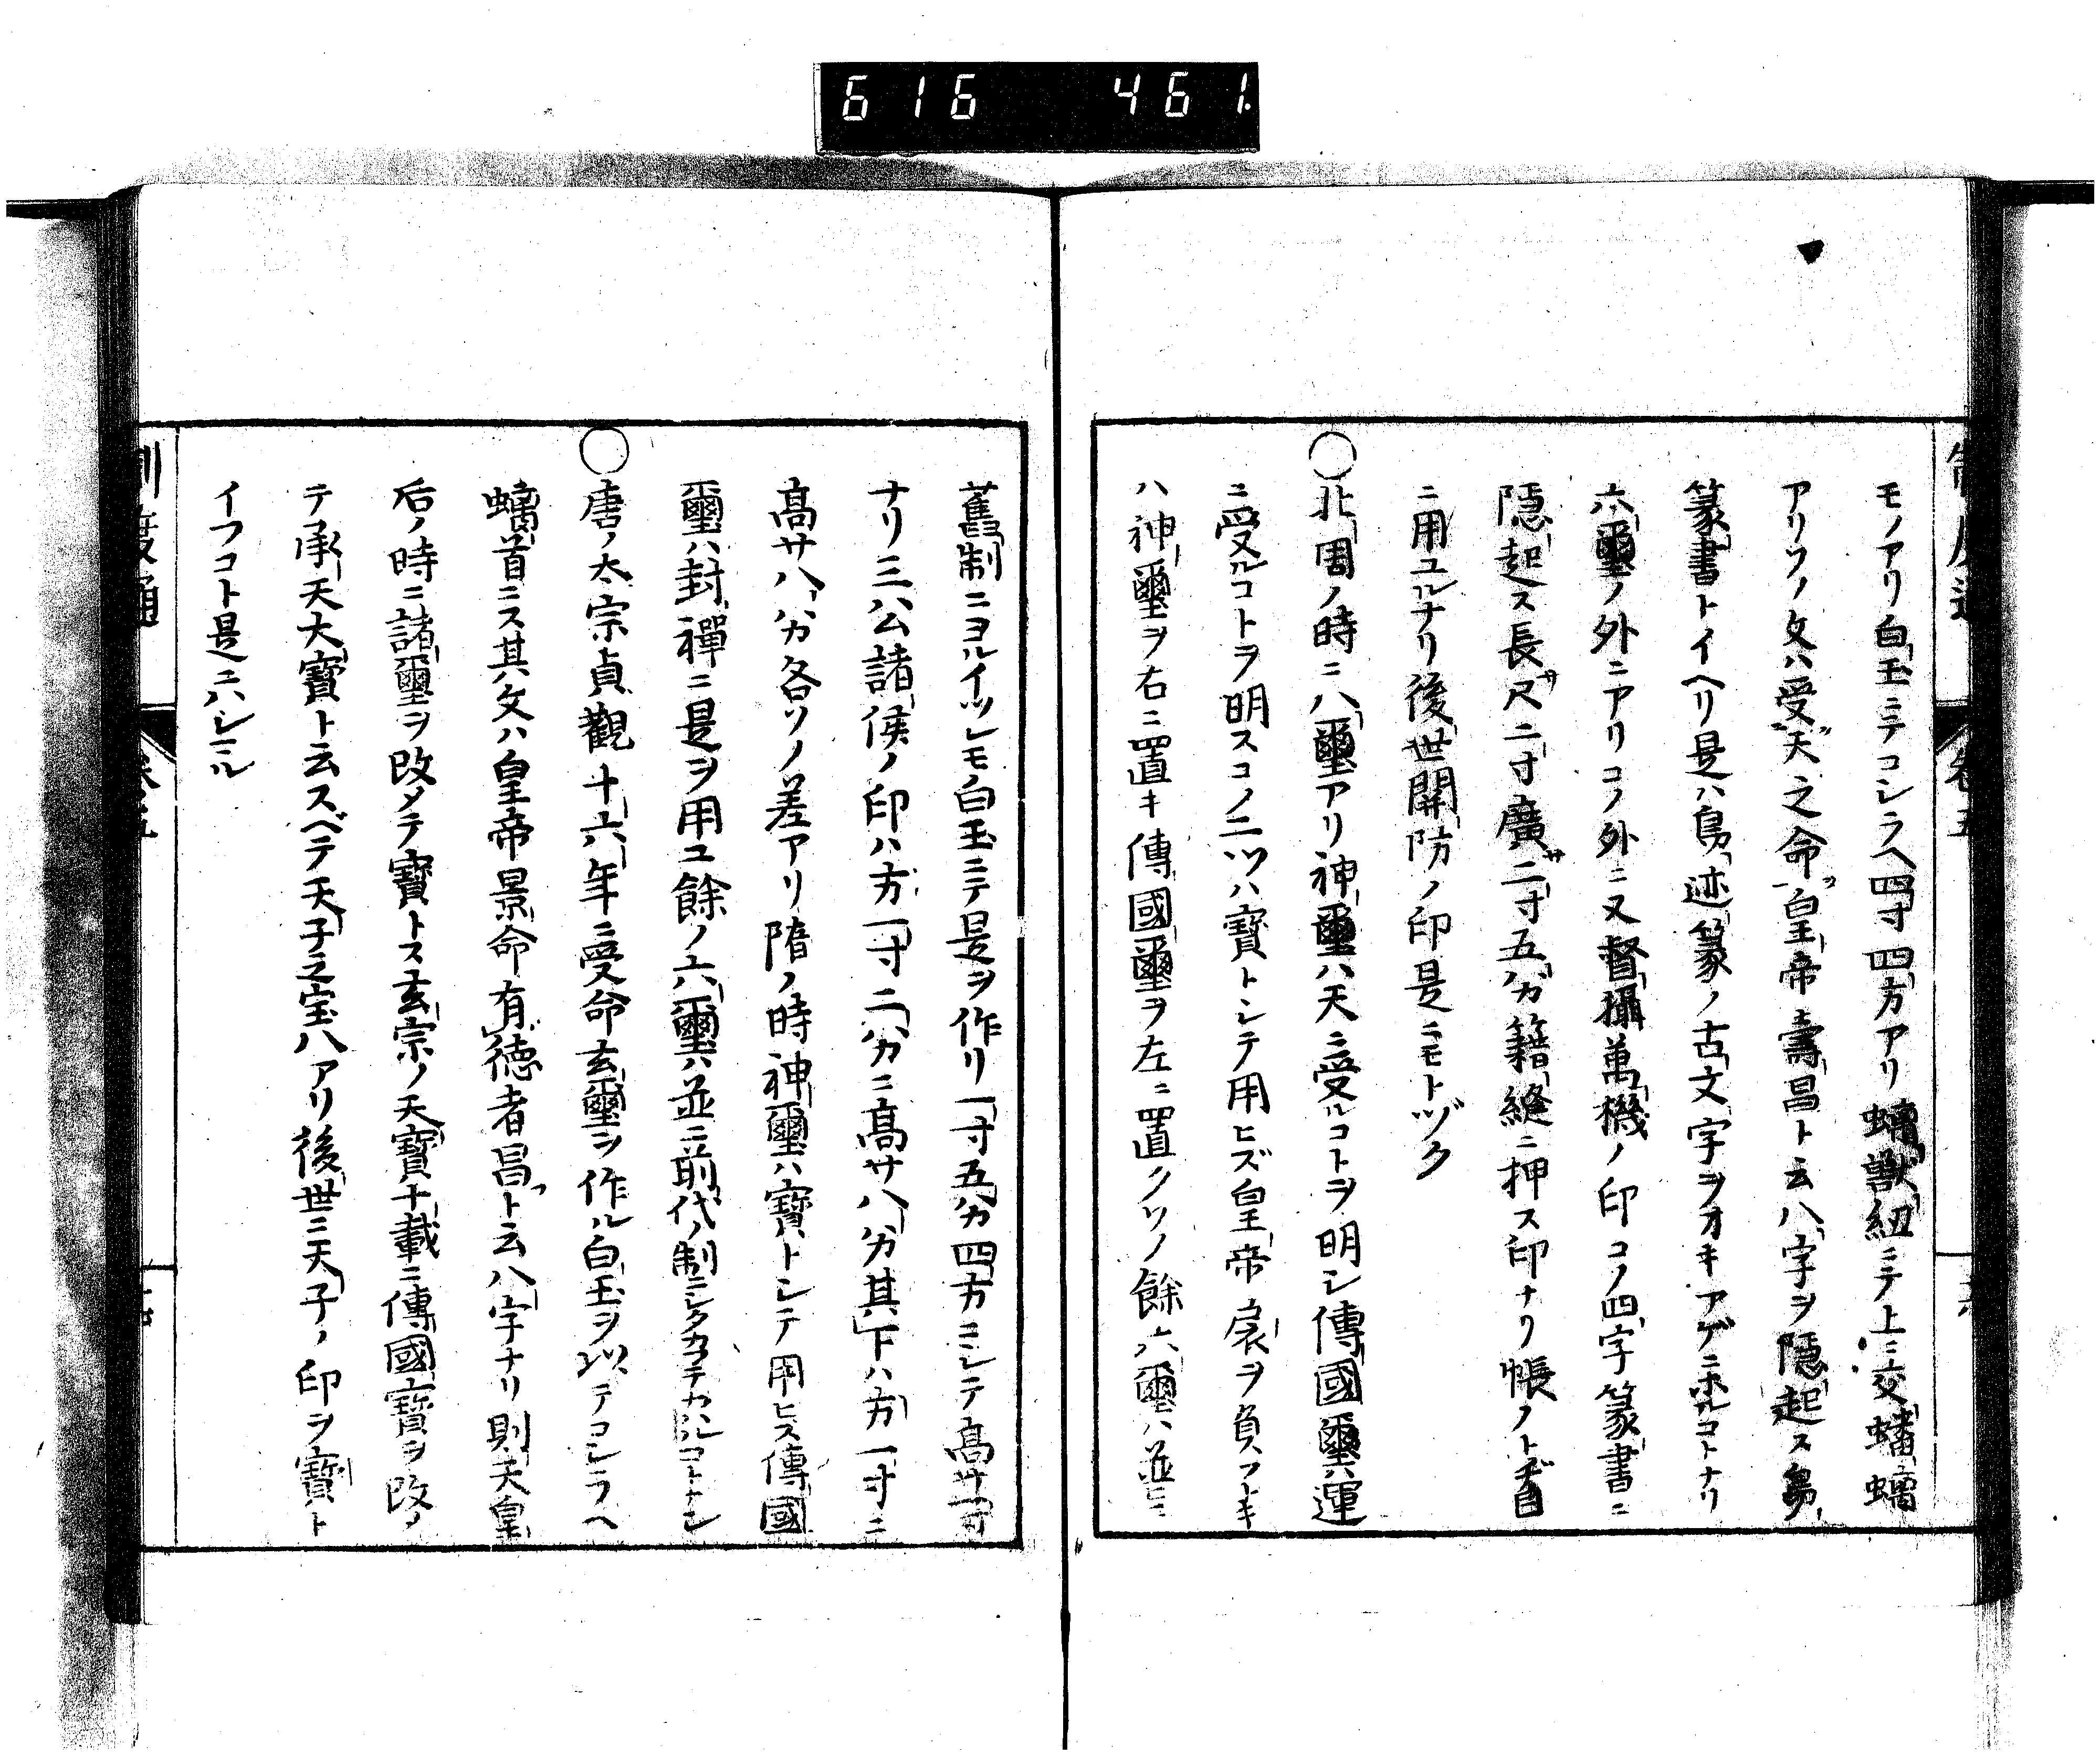 616 461.
モノアリ白玉ニテコシラヘ四寸四方アリ螭獸紐ニテ上ニ交蟠螭
アリソノ文ハ受天之命皇帝壽昌ト云八字ヲ隱起ス鳥
篆書トイヘリ是ハ鳥迹篆ノ古文字ヲオキアゲニホルコトナリ
六璽ノ外ニアリコノ外ニ又督攝萬機ノ印コノ四字篆書ニ
隱起ス長サ尺二寸廣サ二寸五分籍縫ニ押ス印ナリ帳ノトヂ目
ニ用ユルナリ後世開防ノ印是ニモトヅク
○北周ノ時ニ八璽アリ神璽ハ天ニ受ルコトヲ明シ傳國璽ハ運
ニ受ルコトヲ明スコノ二ツハ寶トシテ用ヒズ皇帝扆ヲ負フトキ
ハ神璽ヲ右ニ置キ傳國璽ヲ左ニ置クソノ餘六璽ハ並ヒニ
制度通 卷五
舊制ニヨルイツレモ白玉ニテ是ヲ作リ一寸五分四方ニシテ高サ一寸
ナリ三公諸侯ノ印ハ方一寸二分ニ高サ八分其下ハ方一寸ニ
高サ八分各ソノ差アリ隋ノ時神璽ハ寶トシテ用ヒス傳國
璽ハ封禪ニ是ヲ用ユ餘ノ六璽ハ並ニ前代ノ制ニシタカフテカハルコトナシ
○唐ノ太宗貞觀十六年ニ受命玄璽ヲ作ル白玉ヲ以テコシラヘ
螭首ニス其文ハ皇帝景命有德者昌ト云八字ナリ則天皇
后ノ時ニ諸璽ヲ改メテ寶トス玄宗ノ天寶十載ニ傳國寶ヲ改メ
テ承天大寶ト云スベテ天子之宝八アリ後世ニ天子ノ印ヲ寶ト
イフコト是ニハシマル
制度通 卷五